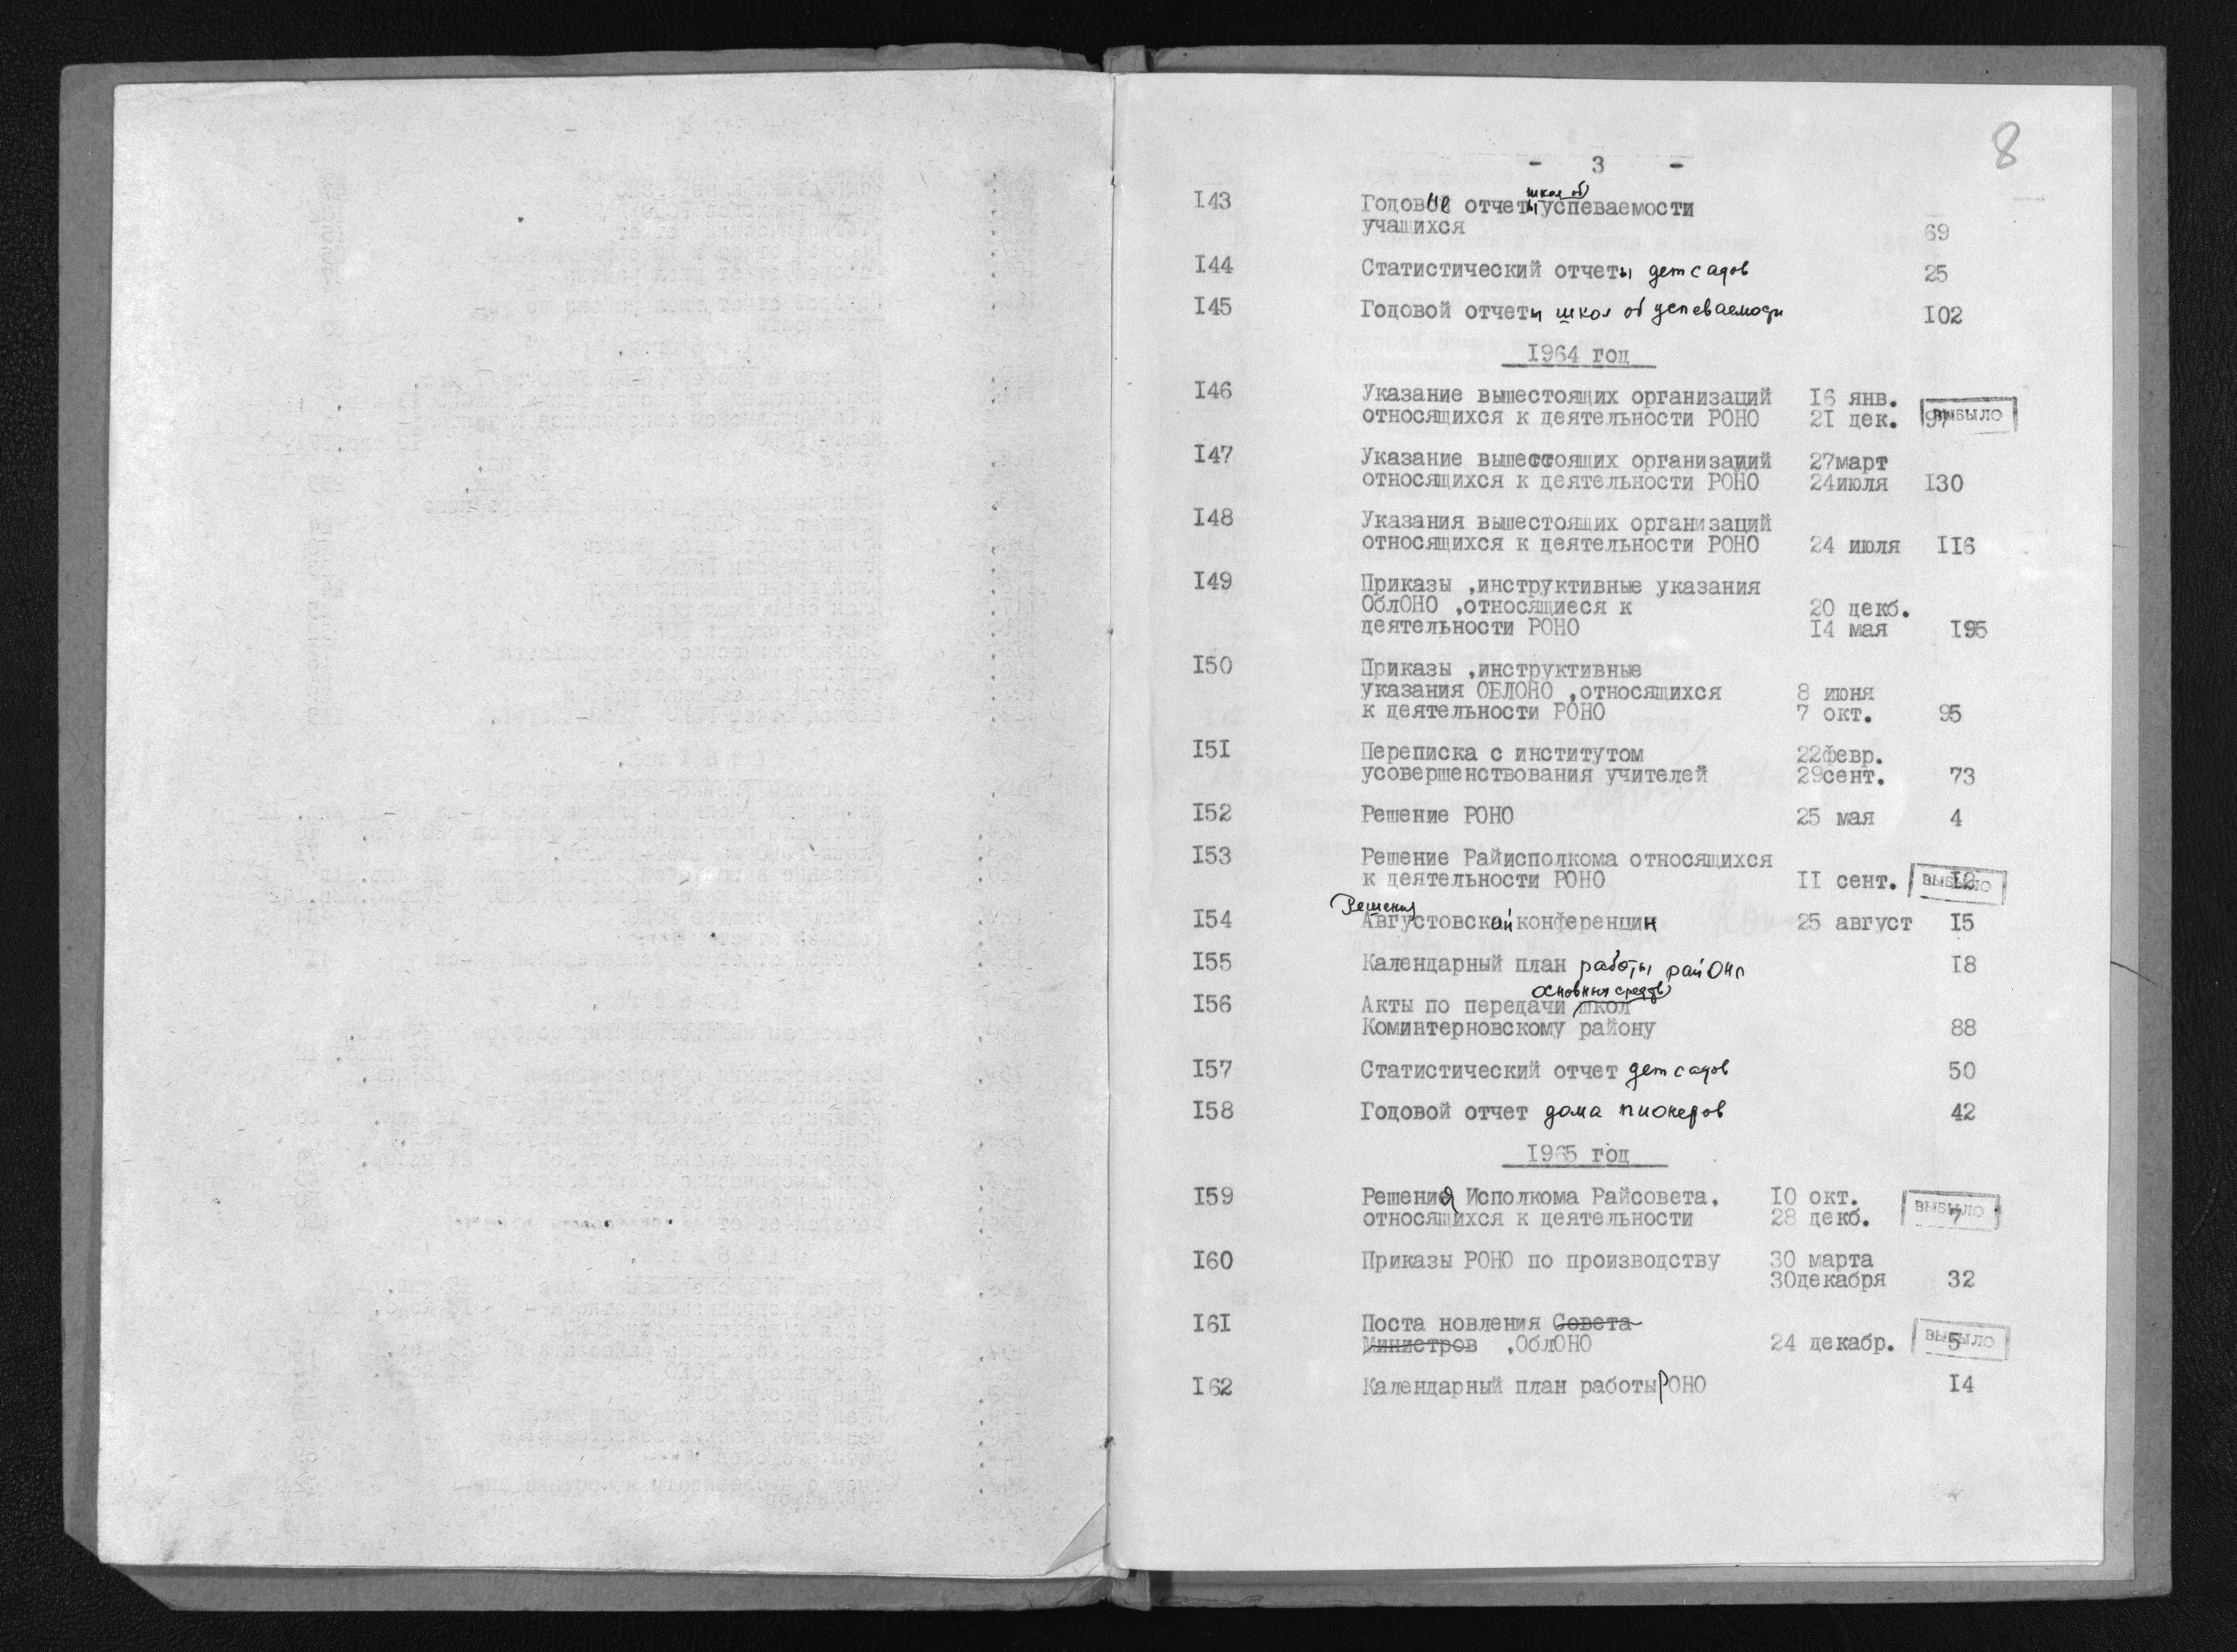 8
- 3 -
143 Годовые отчеты школ об успеваемости
учащихся 69
144 Статистический отчеты детсадов 25
145 Годовой отчеты школ об успеваемости 102
1964 год
146 Указание вышестоящих организаций 16 янв.
относящихся к деятельности РОНО 21 дек. 97 ВЫБЫЛО
147 Указание вышестоящих организаций 27март
относящихся к деятельности РОНО 24июля 130
148 Указания вышестоящих организаций
относящихся к деятельности РОНО 24 июля 116
149 Приказы ,инструктивные указания
ОблОНО ,относящиеся к 20 декб.
деятельности РОНО 14 мая 195
150 Приказы ,инструктивные
указания ОБЛОНО ,относящихся 8 июня
к деятельности РОНО 7 окт. 95
151 Переписка с институтом 22февр.
усовершенствования учителей 29сент. 73
152 Решение РОНО 25 мая 4
153 Решение Райисполкома относящихся
к деятельности РОНО 11 сент. 12 ВЫБЫЛО
Решения
154 Августовской конференции 25 август 15
155 Календарный план работы районо 18
основных средств
156 Акты по передачи школ
Коминтерновскому району 88
157 Статистический отчет детсадов 50
158 Годовой отчет дома пионеров 42
1965 год
159 Решения Исполкома Райсовета. 10 окт.
относящихся к деятельности 28 декб. 7 ВЫБЫЛО
160 Приказы РОНО по производству 30 марта
30декабря 32
161 Поста новления Совета
Министров ,ОблОНО 24 декабр. 5 ВЫБЫЛО
162 Календарный план работы РОНО 14